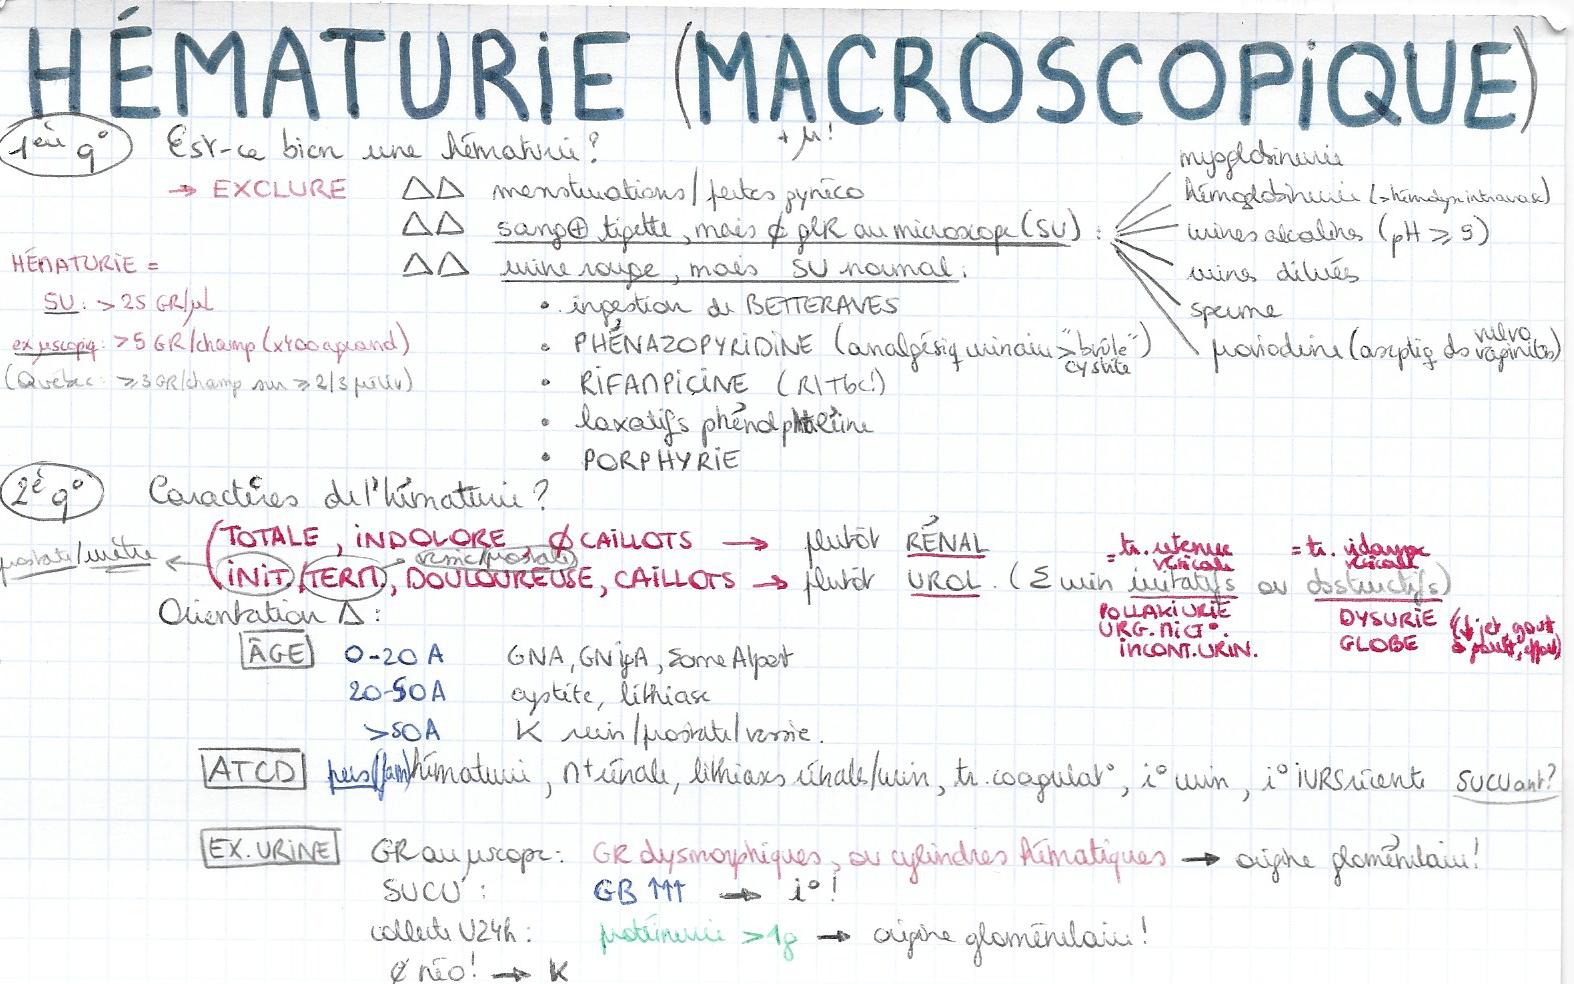 HÉMATURIE (MACROSCOPIQUE)
+ µ!
1ère q° Est-ce bien une hématurie?
→ EXCLURE ΔΔ menstruations/pertes gynéco
ΔΔ sang⊕ tigette, mais ∅ glR au microscope (SU) :
myoglobinurie
hémoglobinurie (>hémolyse intravasc)
urines alcalines (pH ≥ 9)
urines diluées
sperme
proviodine (aseptiq ds vulvo vaginites)
ΔΔ urine rouge, mais SU normal :
• ingestion de BETTERAVES
• PHÉNAZOPYRIDINE (analgésiq urinaire > "brûle" cystite)
• RIFAMPICINE (R/Tbc!)
• laxatifs phénolphtaléine
• PORPHYRIE
HÉMATURIE =
SU: > 25 GR/µl
ex µscopiq: > 5 GR/champ (x400 aggrand)
(Québec: ≥ 3 GR/champ sur ≥ 2/3 prélèv)
2è q° Caractères de l'hématurie?
(TOTALE, INDOLORE ∅ CAILLOTS → plutôt RÉNAL
prostate/urètre ← (INIT/TERM, DOULOUREUSE, CAILLOTS → plutôt UROL. (Σ urin irritatifs ou obstructifs)
vessie/prostate
= tr. retenue vésicale
= tr. vidange vésicale
POLLAKIURIE
URG. MICT°.
INCONT. URIN.
DYSURIE (↓ jet, goutt
GLOBE à goutt, effort)
Orientation Δ :
ÂGE 0-20 A GNA, GN IgA, Σdrome Alport
20-50 A cystite, lithiase
>50A K rein/prostate/vessie.
ATCD pers(fam) hématurie, n+ rénale, lithiases rénale/urin, tr. coagulat°, i° urin, i° IVRS récente SUCU ant?
EX. URINE GR au µscope: GR dysmorphiques, ou cylindres hématiques → origine glomérulaire!
SUCU : GB ↑↑↑ → i°!
collecte U24h : protéinurie > 1g → origine glomérulaire!
¢ néo! → K